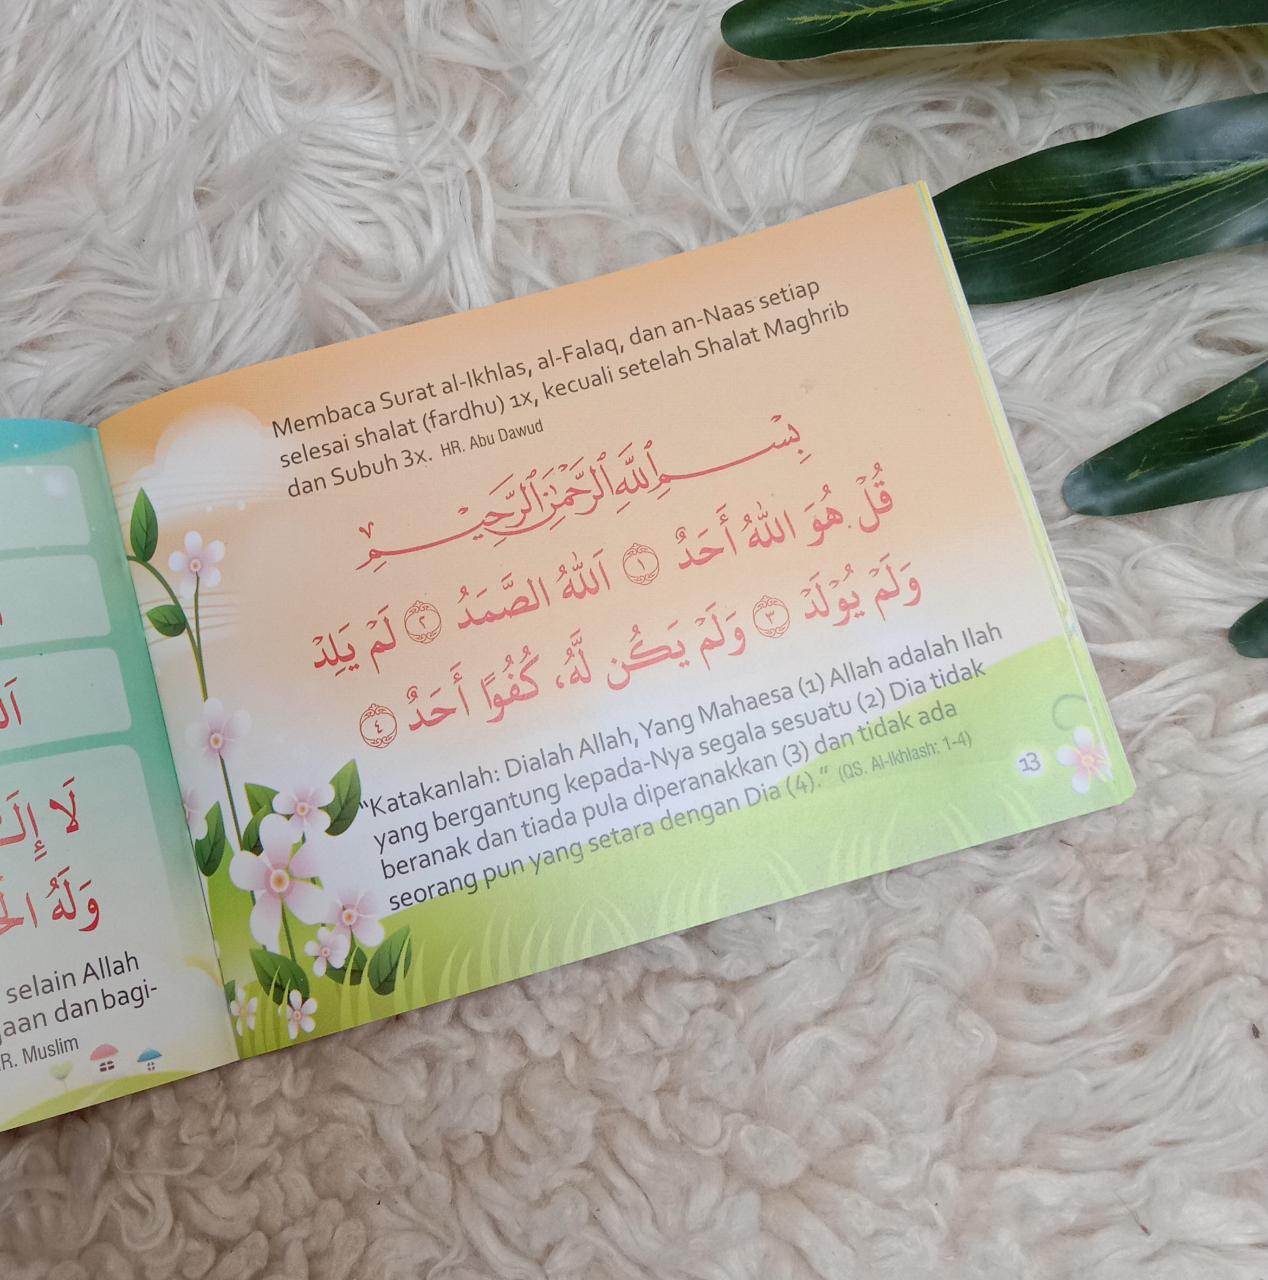 Membaca Surat al-Ikhlas, al-Falaq, dan an-Naas setiap
selesai shalat (fardhu) 1x, kecuali setelah Shalat Maghrib
dan Subuh 3x. HR. Abu Dawud
بِسْمِ اللَّهِ الرَّحْمَٰنِ الرَّحِيمِ
قُلْ هُوَ اللّٰهُ أَحَدٌ ١ اَللّٰهُ الصَّمَدُ ٢ لَمْ يَلِدْ
وَلَمْ يُوْلَدْ ٣ وَلَمْ يَكُن لَّهُۥ كُفُوًا أَحَدٌ ٤
“Katakanlah: Dialah Allah, Yang Mahaesa (1) Allah adalah Ilah
yang bergantung kepada-Nya segala sesuatu (2) Dia tidak
beranak dan tiada pula diperanakkan (3) dan tidak ada
seorang pun yang setara dengan Dia (4).” (QS. Al-Ikhlash: 1-4)
13
لَا
وَلَهُ
selain Allah
dan bagi-
Muslim